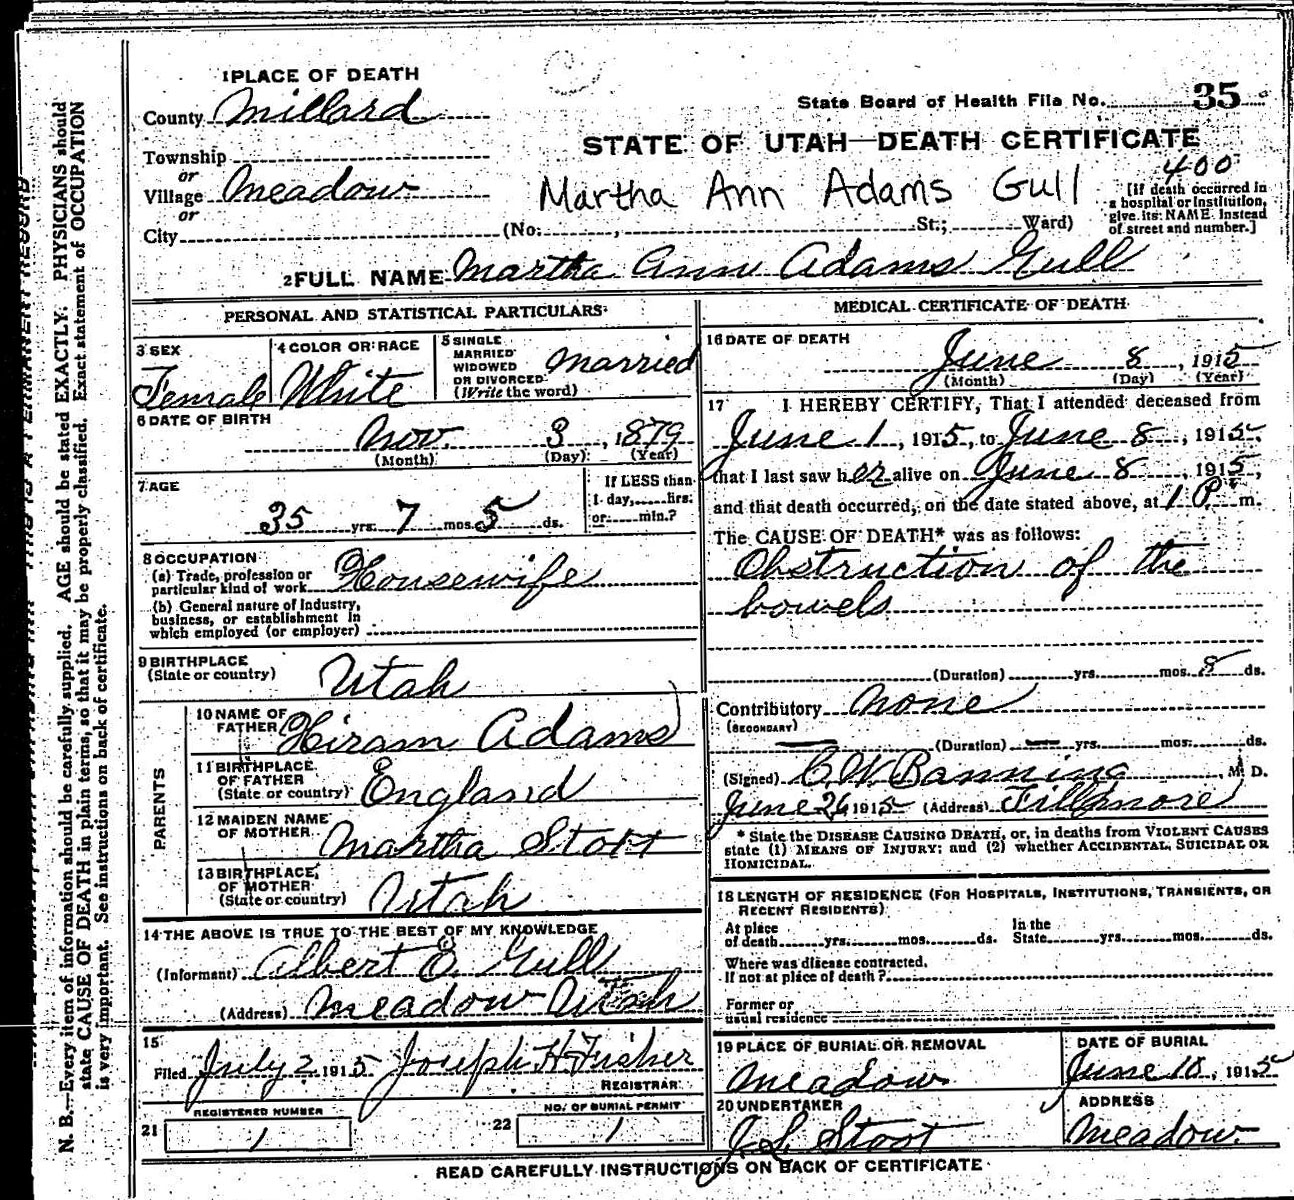 1 PLACE OF DEATH
County Millard
State Board of Health File No. 35
STATE OF UTAH—DEATH CERTIFICATE
Township
or
Village Meadow
or
City (No. , St.; Ward)
Martha Ann Adams Gull
400
[If death occurred in
a hospital or institution,
give its NAME instead
of street and number.]
2 FULL NAME Martha Ann Adams Gull
PERSONAL AND STATISTICAL PARTICULARS
3 SEX
Female
4 COLOR OR RACE
White
5 SINGLE
MARRIED
WIDOWED
OR DIVORCED
(Write the word)
Married
6 DATE OF BIRTH
Nov. 3, 1879
(Month) (Day) (Year)
7 AGE
35 yrs. 7 mos. 5 ds.
If LESS than
1 day, hrs.
or min.?
8 OCCUPATION
(a) Trade, profession or
particular kind of work Housewife
(b) General nature of Industry,
business, or establishment in
which employed (or employer)
9 BIRTHPLACE
(State or country) Utah
PARENTS
10 NAME OF
FATHER Hiram Adams
11 BIRTHPLACE
OF FATHER
(State or country) England
12 MAIDEN NAME
OF MOTHER Martha Stott
13 BIRTHPLACE
OF MOTHER
(State or country) Utah
14 THE ABOVE IS TRUE TO THE BEST OF MY KNOWLEDGE
(Informant) Albert E. Gull
(Address) Meadow Utah
15
Filed July 2 1915 Joseph H Fisher
REGISTRAR
REGISTERED NUMBER
21 1
NO. OF BURIAL PERMIT
22 1
MEDICAL CERTIFICATE OF DEATH
16 DATE OF DEATH
June 8, 1915
(Month) (Day) (Year)
17 I HEREBY CERTIFY, That I attended deceased from
June 1, 1915, to June 8, 1915,
that I last saw her alive on June 8, 1915,
and that death occurred, on the date stated above, at 1 P. m.
The CAUSE OF DEATH* was as follows:
Obstruction of the
bowels
(Duration) yrs. mos. 8 ds.
Contributory None
(SECONDARY)
(Duration) yrs. mos. ds.
(Signed) C. W. Banning, M. D.
June 26 1915 (Address) Fillmore
* State the DISEASE CAUSING DEATH, or, in deaths from VIOLENT CAUSES
state (1) MEANS OF INJURY; and (2) whether ACCIDENTAL, SUICIDAL OR
HOMICIDAL.
18 LENGTH OF RESIDENCE (FOR HOSPITALS, INSTITUTIONS, TRANSIENTS, OR
RECENT RESIDENTS)
At place
of death yrs. mos. ds.
In the
State yrs. mos. ds.
Where was disease contracted,
if not at place of death?
Former or
usual residence
19 PLACE OF BURIAL OR REMOVAL
Meadow
DATE OF BURIAL
June 10, 1915
20 UNDERTAKER
J. L. Stott
ADDRESS
Meadow
READ CAREFULLY INSTRUCTIONS ON BACK OF CERTIFICATE
N. B.—Every item of information should be carefully supplied. AGE should be stated EXACTLY. PHYSICIANS should
state CAUSE OF DEATH in plain terms, so that it may be properly classified. Exact statement of OCCUPATION
is very important. See instructions on back of certificate.